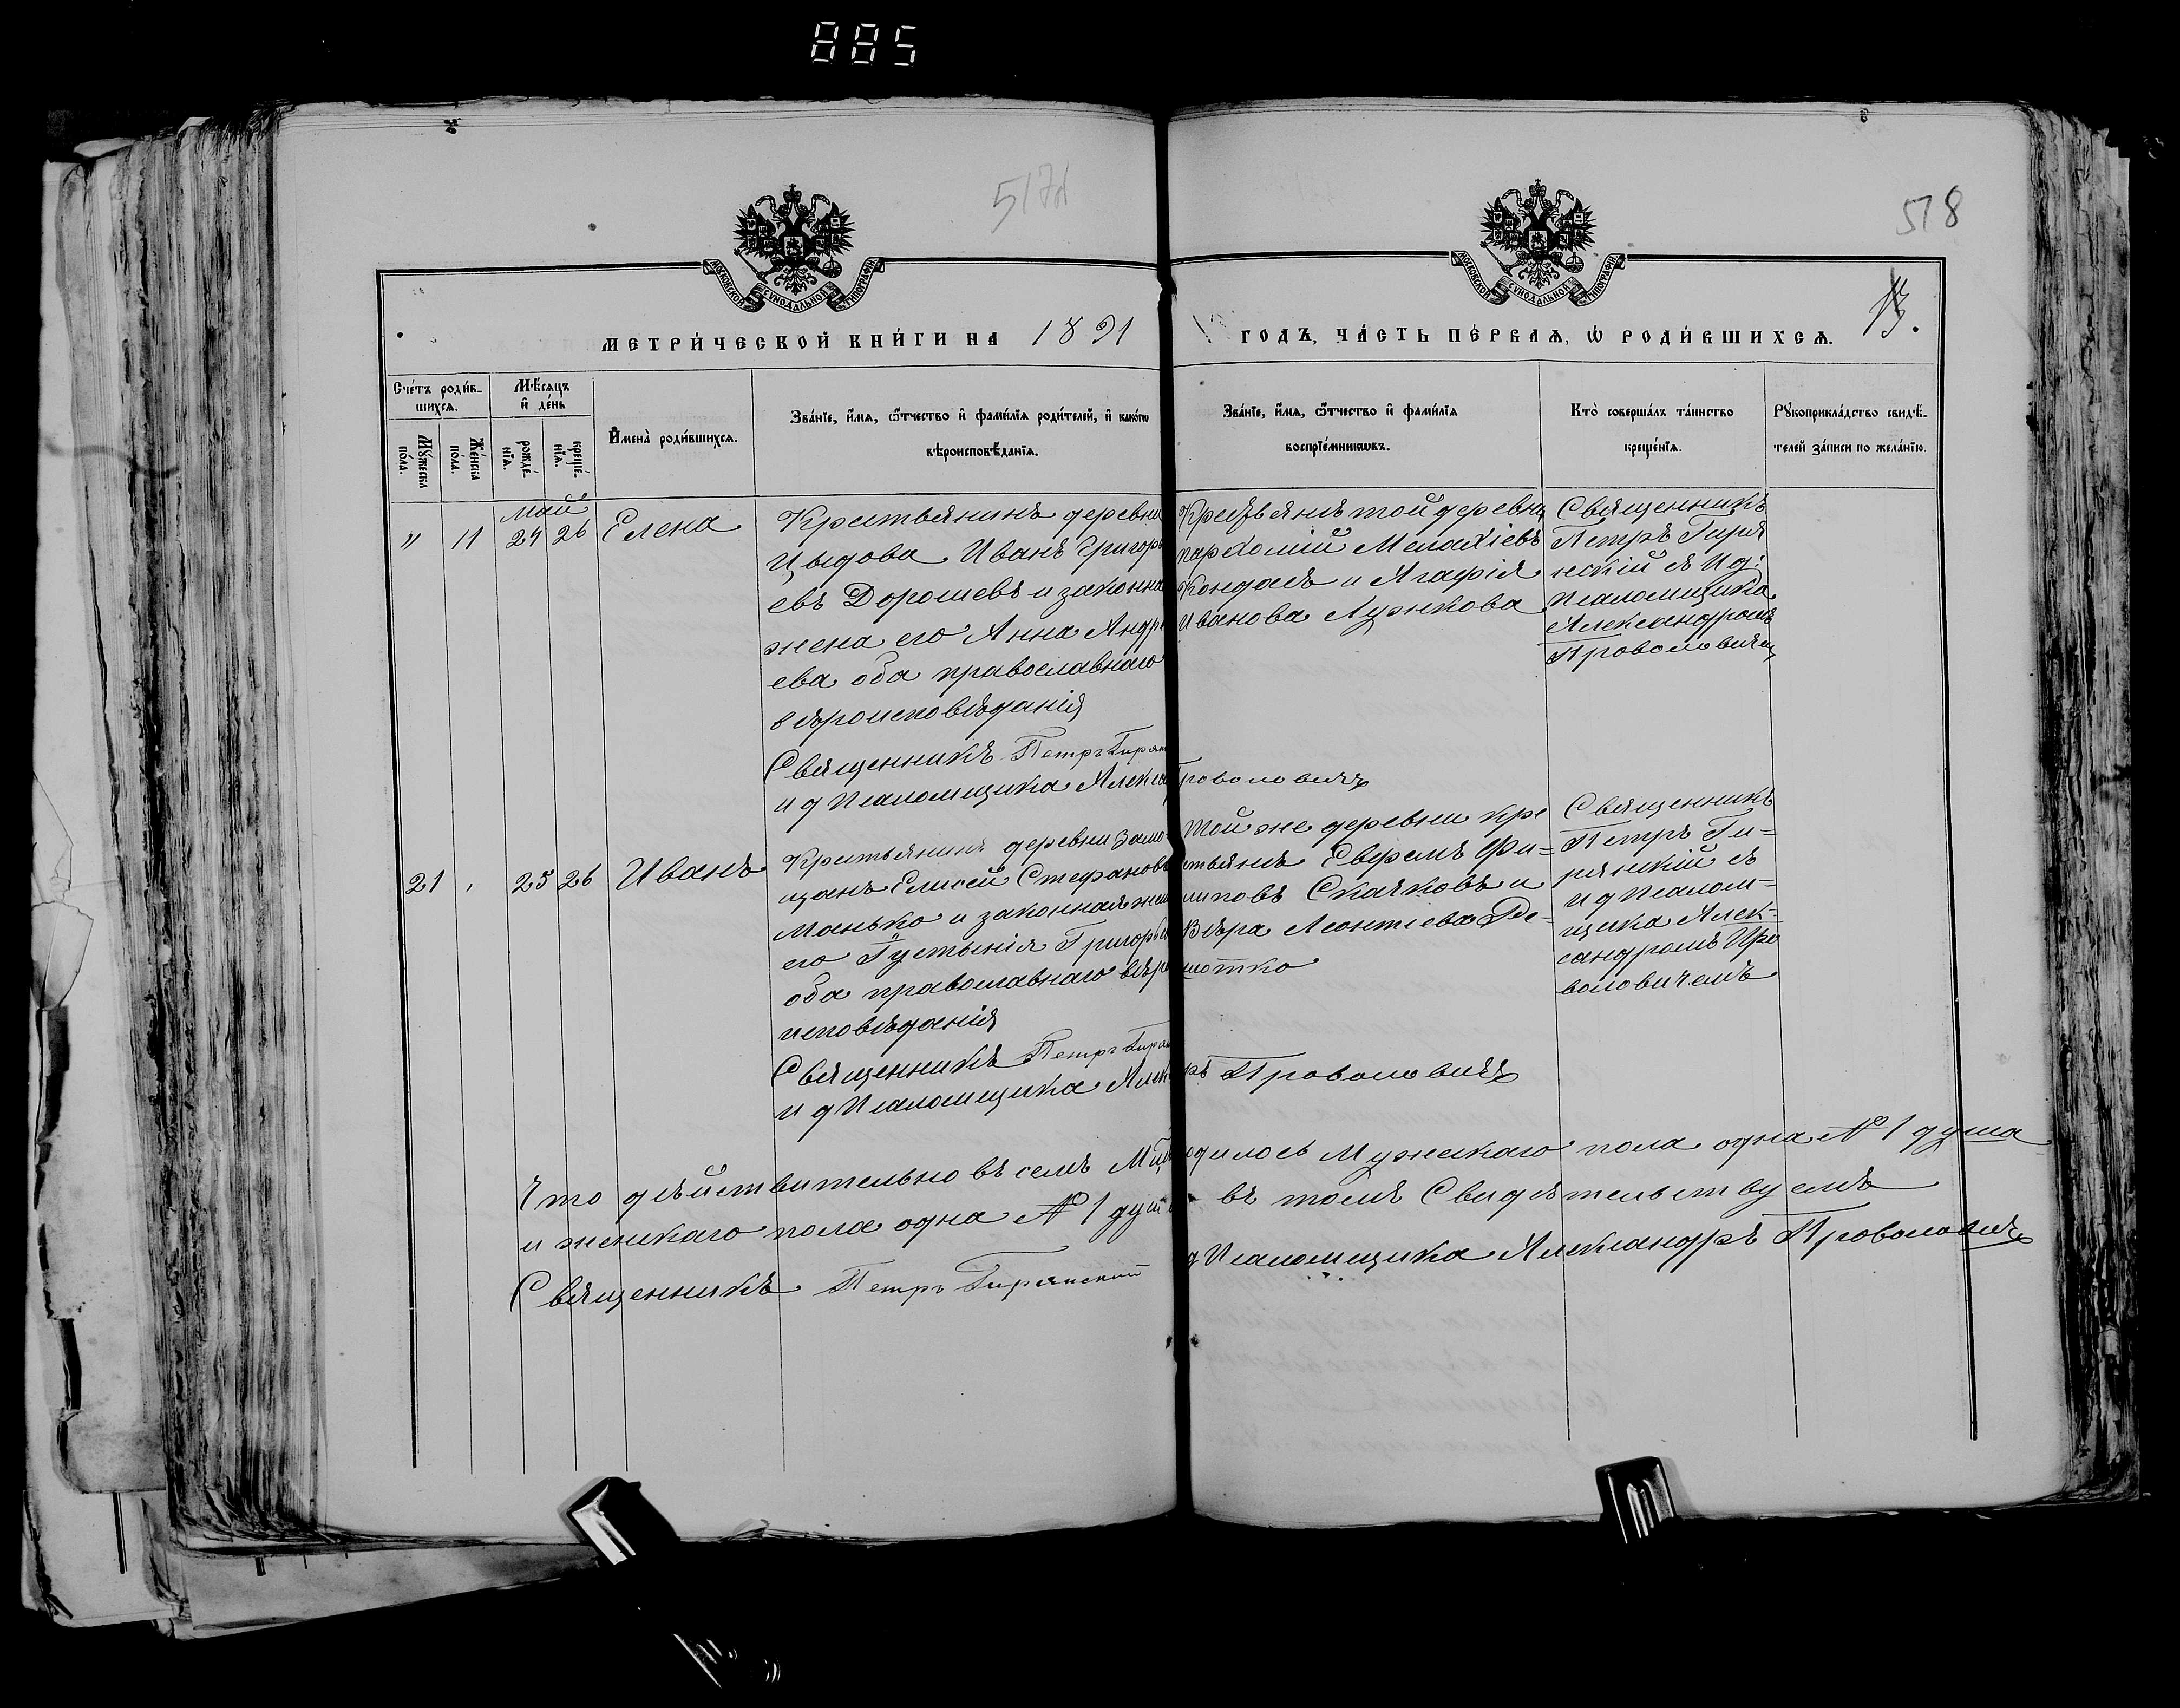 885
517об
518
МОСКОВСКОЙ СѴНОДАЛЬНОЙ ТИПОГРАФІИ
МОСКОВСКОЙ СѴНОДАЛЬНОЙ ТИПОГРАФІИ
13.
МЕТРИ́ЧЕСКОЙ КНИ́ГИ НА 1891 ГОДЪ, ЧА́СТЬ ПЕ́РВАѦ, Ѡ҆ РОДИ́ВШИХСѦ.
Сче́тъ роди́в-
шихсѧ.
Мꙋ́жеска по́ла.
Же́нска по́ла.
Мѣ́сѧцъ
и҆ де́нь
рожде́-
нїѧ.
креще́-
нїѧ.
И҆мена̀ роди́вшихсѧ.
Зва́нїе, и҆́мѧ, ѻ҆́тчество и҆ фами́лїѧ роди́телей, и҆ како́гѡ
вѣроисповѣ́данїѧ.
Зва́нїе, и҆́мѧ, ѻ҆́тчество и҆ фами́лїѧ
воспрїе́мникѡвъ.
Кто̀ соверша́лъ та́инство
креще́нїѧ.
Рꙋкоприкла́дство свидѣ́-
телей за́писи по жела́нїю.
Май
" 11 24 26 Елена
Крестьянинъ деревни
Цыдова Иванъ Григорь
евъ Дорошевъ и законна
жена его Анна Андре
ева оба православнаго
вѣроисповѣданія
Священникъ Петръ Гирян
и д Псаломщика Алекса Проволовичъ
Крестьянъ той деревни
Пархомій Малахіевъ
Кондаль и Агафія
Иванова Лужкова
Священникъ
Петръ Гиря
нскій съ И д:
Псаломщика
Александромъ
Проволовичем
21 , 25 26 Иванъ
Крестьянинъ деревни Замо-
щанъ Елисей Стефановъ
Манько и законная жен
его Густинія Григорьев
оба православнаго вѣро
исповѣданія
Священникъ Петръ Гирян
и д Псаломщика Алексан ръ Проволовичъ
Той же деревни кре
стьянъ Ефремъ Фи=
липовъ Скачковъ и
Вѣра Леонтіева Ре-
шотко
Священникъ
Петръ Ги=
рянскій съ
и д Псалом=
щика Алек=
сандромъ Про
воловичемъ
Что дѣйствительно въ семъ Мцѣ родилось Мужескаго пола одна № 1 душа
и женскаго пола одна № 1 душа въ томъ Свидѣтельствуемъ
Священникъ Петръ Гирянский д Псаломщика Александръ Проволовичъ